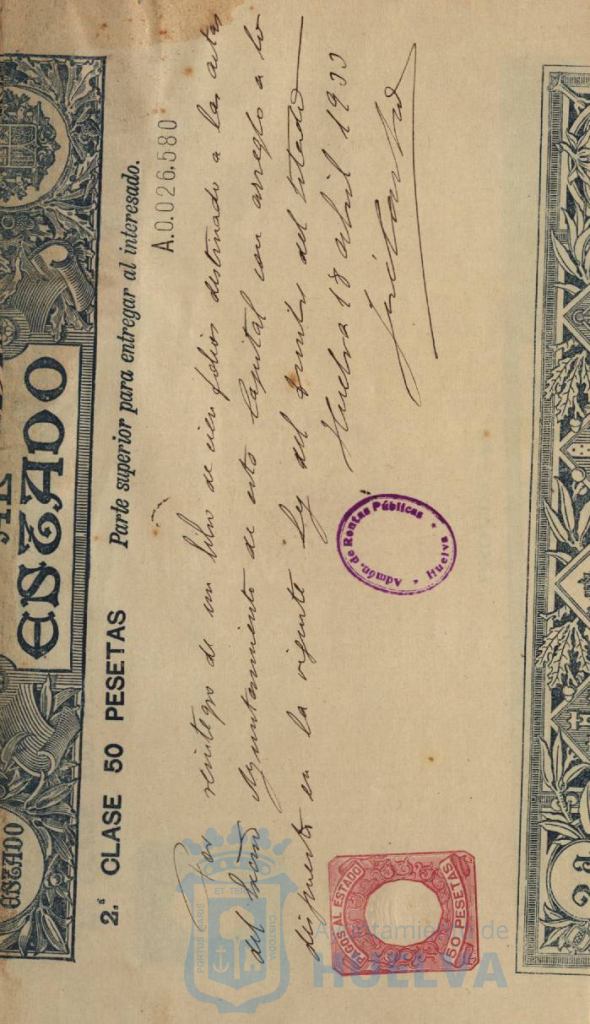 ESTADO
ESTADO
2.ª CLASE 50 PESETAS
Parte superior para entregar al interesado.
A.0.026.580
Por reintegro de un libro de cien folios destinado a las actas
del Excmo Ayuntamiento de esta Capital con arreglo a lo
dispuesto en la vigente Ley del timbre del Estado
Huelva 18 abril 1933
Admón. de Rentas Públicas
Huelva
PAGOS AL ESTADO
50 PESETAS
PORTUS MARIS
ET TERRAE
CUSTODIA
Ayuntamiento de
HUELVA
2ª